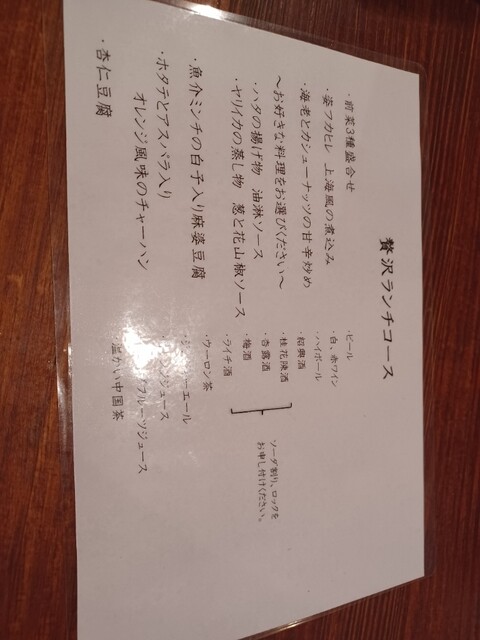 贅沢ランチコース
・前菜3種盛合せ
・姿フカヒレ 上海風の煮込み
・海老とカシューナッツの甘辛炒め
～お好きな料理をお選びください～
・ハタの揚げ物 油淋ソース
・ヤリイカの蒸し物 葱と花山椒ソース
・魚介ミンチの白子入り麻婆豆腐
・ホタテとアスパラ入り
オレンジ風味のチャーハン
・杏仁豆腐
・ビール
・白、赤ワイン
・ハイボール
・紹興酒
・桂花陳酒
・杏露酒
・梅酒
・ライチ酒
ソーダ割り、ロックを
お申し付けください。
・ウーロン茶
・ジンジャーエール
ジュース
フルーツジュース
温かい中国茶